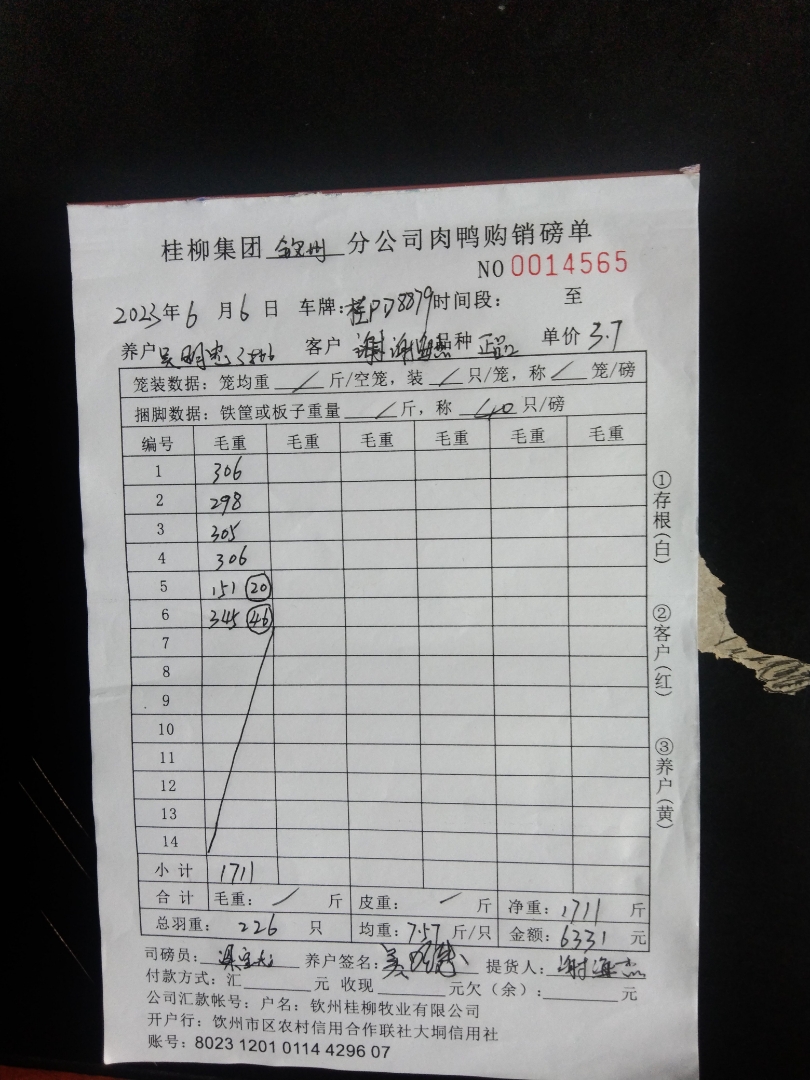 桂柳集团 钦州 分公司肉鸭购销磅单
NO 0014565
2023年6月6日 车牌:桂PD8879时间段: 至
养户 吴明 客户 谢 谢海杰 品种 正品 单价 3.7
笼装数据: 笼均重 / 斤/空笼, 装 / 只/笼, 称 / 笼/磅
捆脚数据: 铁筐或板子重量 / 斤, 称 40 只/磅
编号 毛重 毛重 毛重 毛重 毛重 毛重
1 306
2 298
3 305
4 306
5 151 20
6 345 46
7
8
9
10
11
12
13
14
小计 1711
合计 毛重: / 斤 皮重: / 斤 净重: 1711 斤
总羽重: 226 只 均重: 7.57 斤/只 金额: 6331 元
司磅员: 养户签名: 吴 提货人: 谢海杰
付款方式: 汇 元 收现 元欠(余): 元
公司汇款帐号: 户名: 钦州桂柳牧业有限公司
开户行: 钦州市区农村信用合作联社大垌信用社
账号: 8023 1201 0114 4296 07
①存根(白)
②客户(红)
③养户(黄)